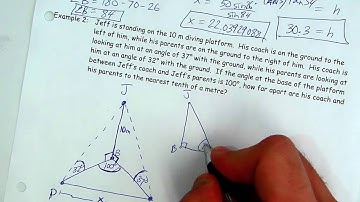 ∠B = 180 - 70 - 26
∠B = 84°
x = 50 sin 36
sin 84
x = 22.0394
30.3 = h
Example 2: Jeff is standing on the 10 m diving platform. His coach is on the ground to the
left of him, while his parents are on the ground to the right of him. His coach is
looking at him at an angle of 37° with the ground, while his parents are looking at
him at an angle of 32° with the ground. If the angle at the base of the platform
between Jeff's coach and Jeff's parents is 100°, how far apart are his coach and
his parents to the nearest tenth of a metre?
J
J
10m
B
B
100°
32°
37°
P
x